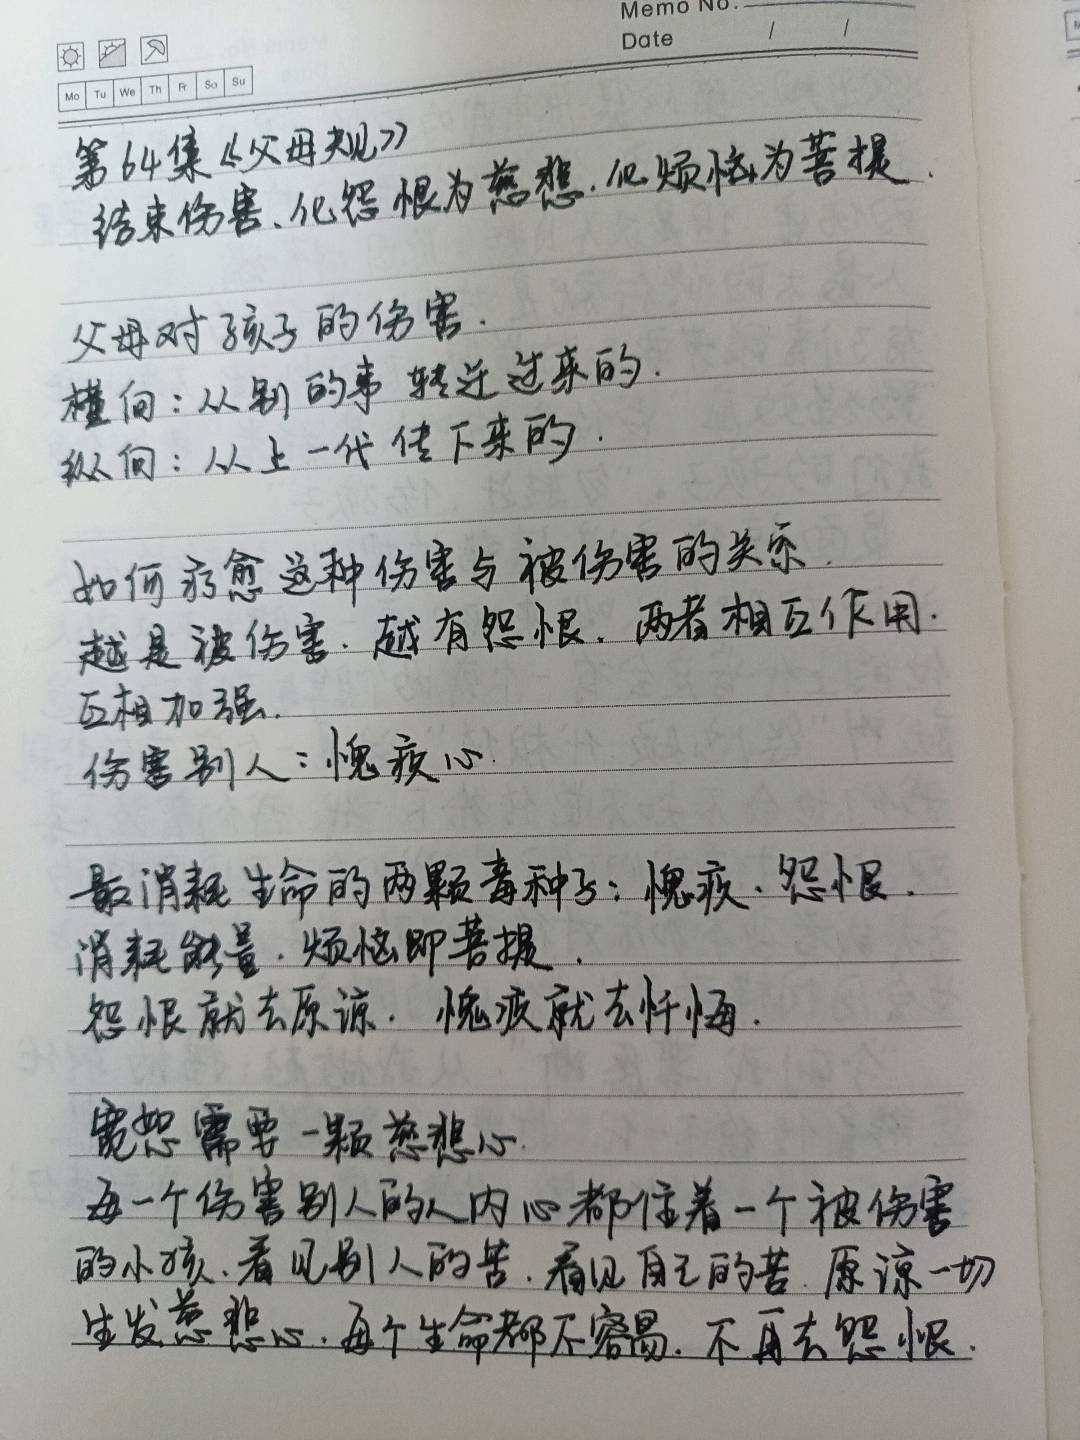 Memo No.
Date / /
Mo Tu We Th Fr Sa Su
第64集《父母规》
结束伤害、化怨恨为慈悲.化烦恼为菩提.
父母对孩子的伤害.
横向:从别的事转迁过来的.
纵向:从上一代传下来的.
如何疗愈这种伤害与被伤害的关系.
越是被伤害.越有怨恨.两者相互作用.
互相加强.
伤害别人:愧疚心.
最消耗生命的两颗毒种子:愧疚.怨恨.
消耗能量.烦恼即菩提.
怨恨就去原谅.愧疚就去忏悔.
宽恕需要一颗慈悲心.
每一个伤害别人的人内心都住着一个被伤害
的小孩、看见别人的苦.看见自己的苦.原谅一切
生发慈悲心.每个生命都不容易.不再去怨恨.